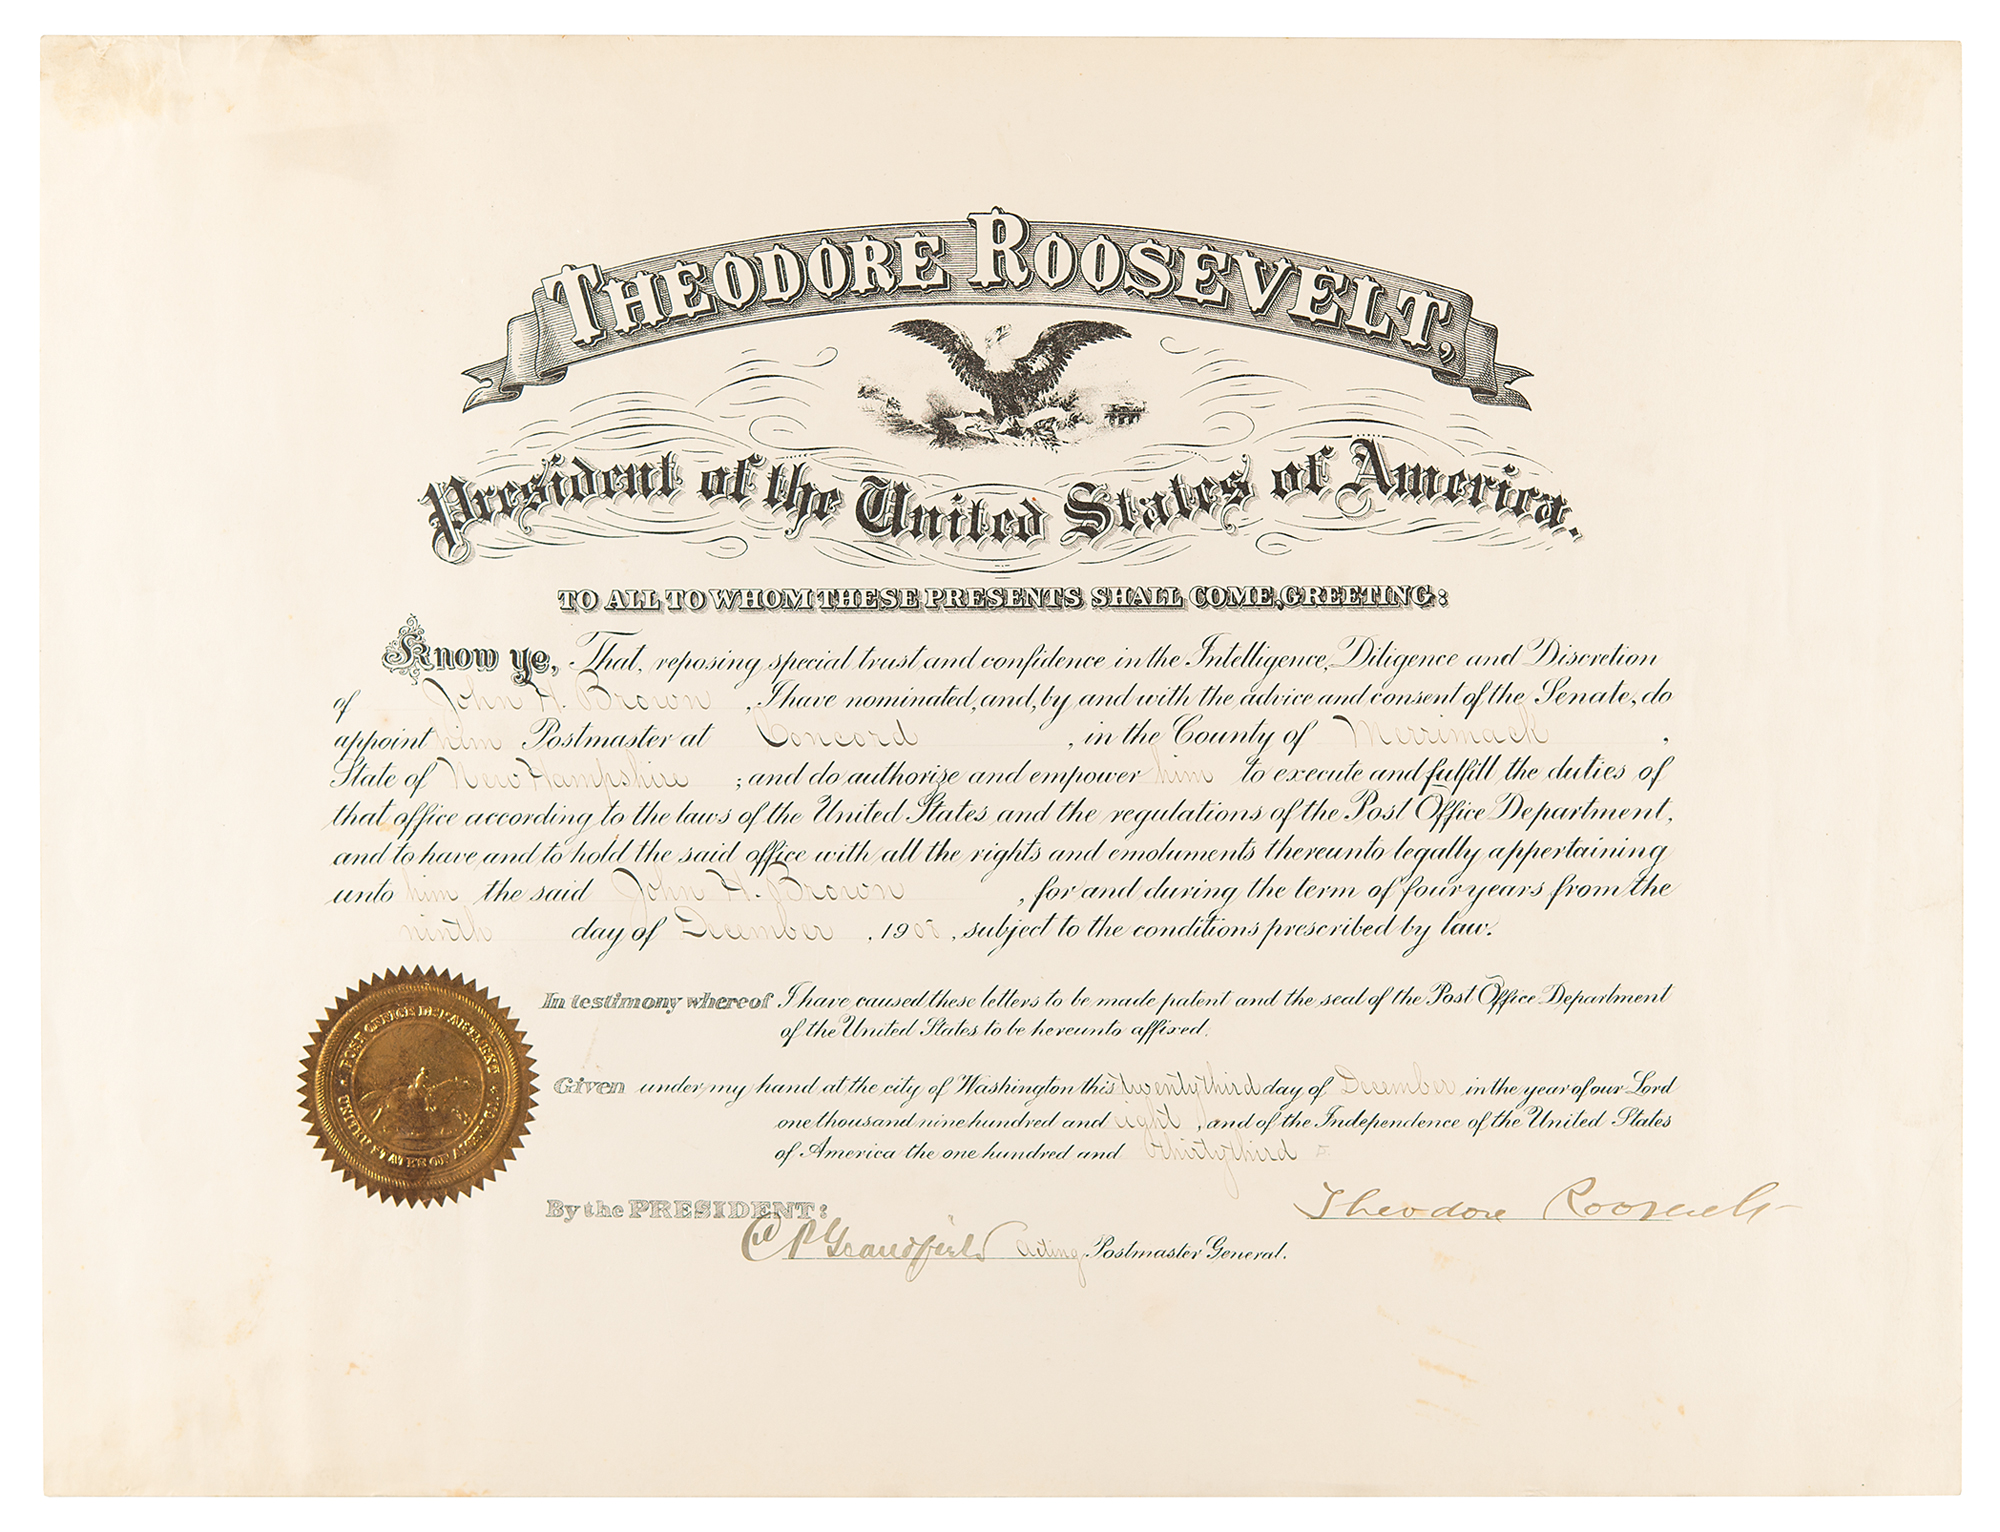 THEODORE ROOSEVELT,
President of the United States of America.
TO ALL TO WHOM THESE PRESENTS SHALL COME, GREETING:
Know ye, That, reposing special trust and confidence in the Intelligence, Diligence and Discretion
of John H. Brown, I have nominated, and, by and with the advice and consent of the Senate, do
appoint him Postmaster at Concord, in the County of Merrimack,
State of New Hampshire; and do authorize and empower him to execute and fulfill the duties of
that office according to the laws of the United States and the regulations of the Post Office Department,
and to have and to hold the said office with all the rights and emoluments thereunto legally appertaining
unto him the said John H. Brown, for and during the term of four years from the
ninth day of December, 1908, subject to the conditions prescribed by law.
In testimony whereof I have caused these letters to be made patent and the seal of the Post Office Department
of the United States to be hereunto affixed.
Given under my hand at the city of Washington this twenty third day of December in the year of our Lord
one thousand nine hundred and eight, and of the Independence of the United States
of America the one hundred and thirty third
By the PRESIDENT:
Theodore Roosevelt
C P Grandfield Acting Postmaster General.
POST OFFICE DEPARTMENT
UNITED STATES OF AMERICA